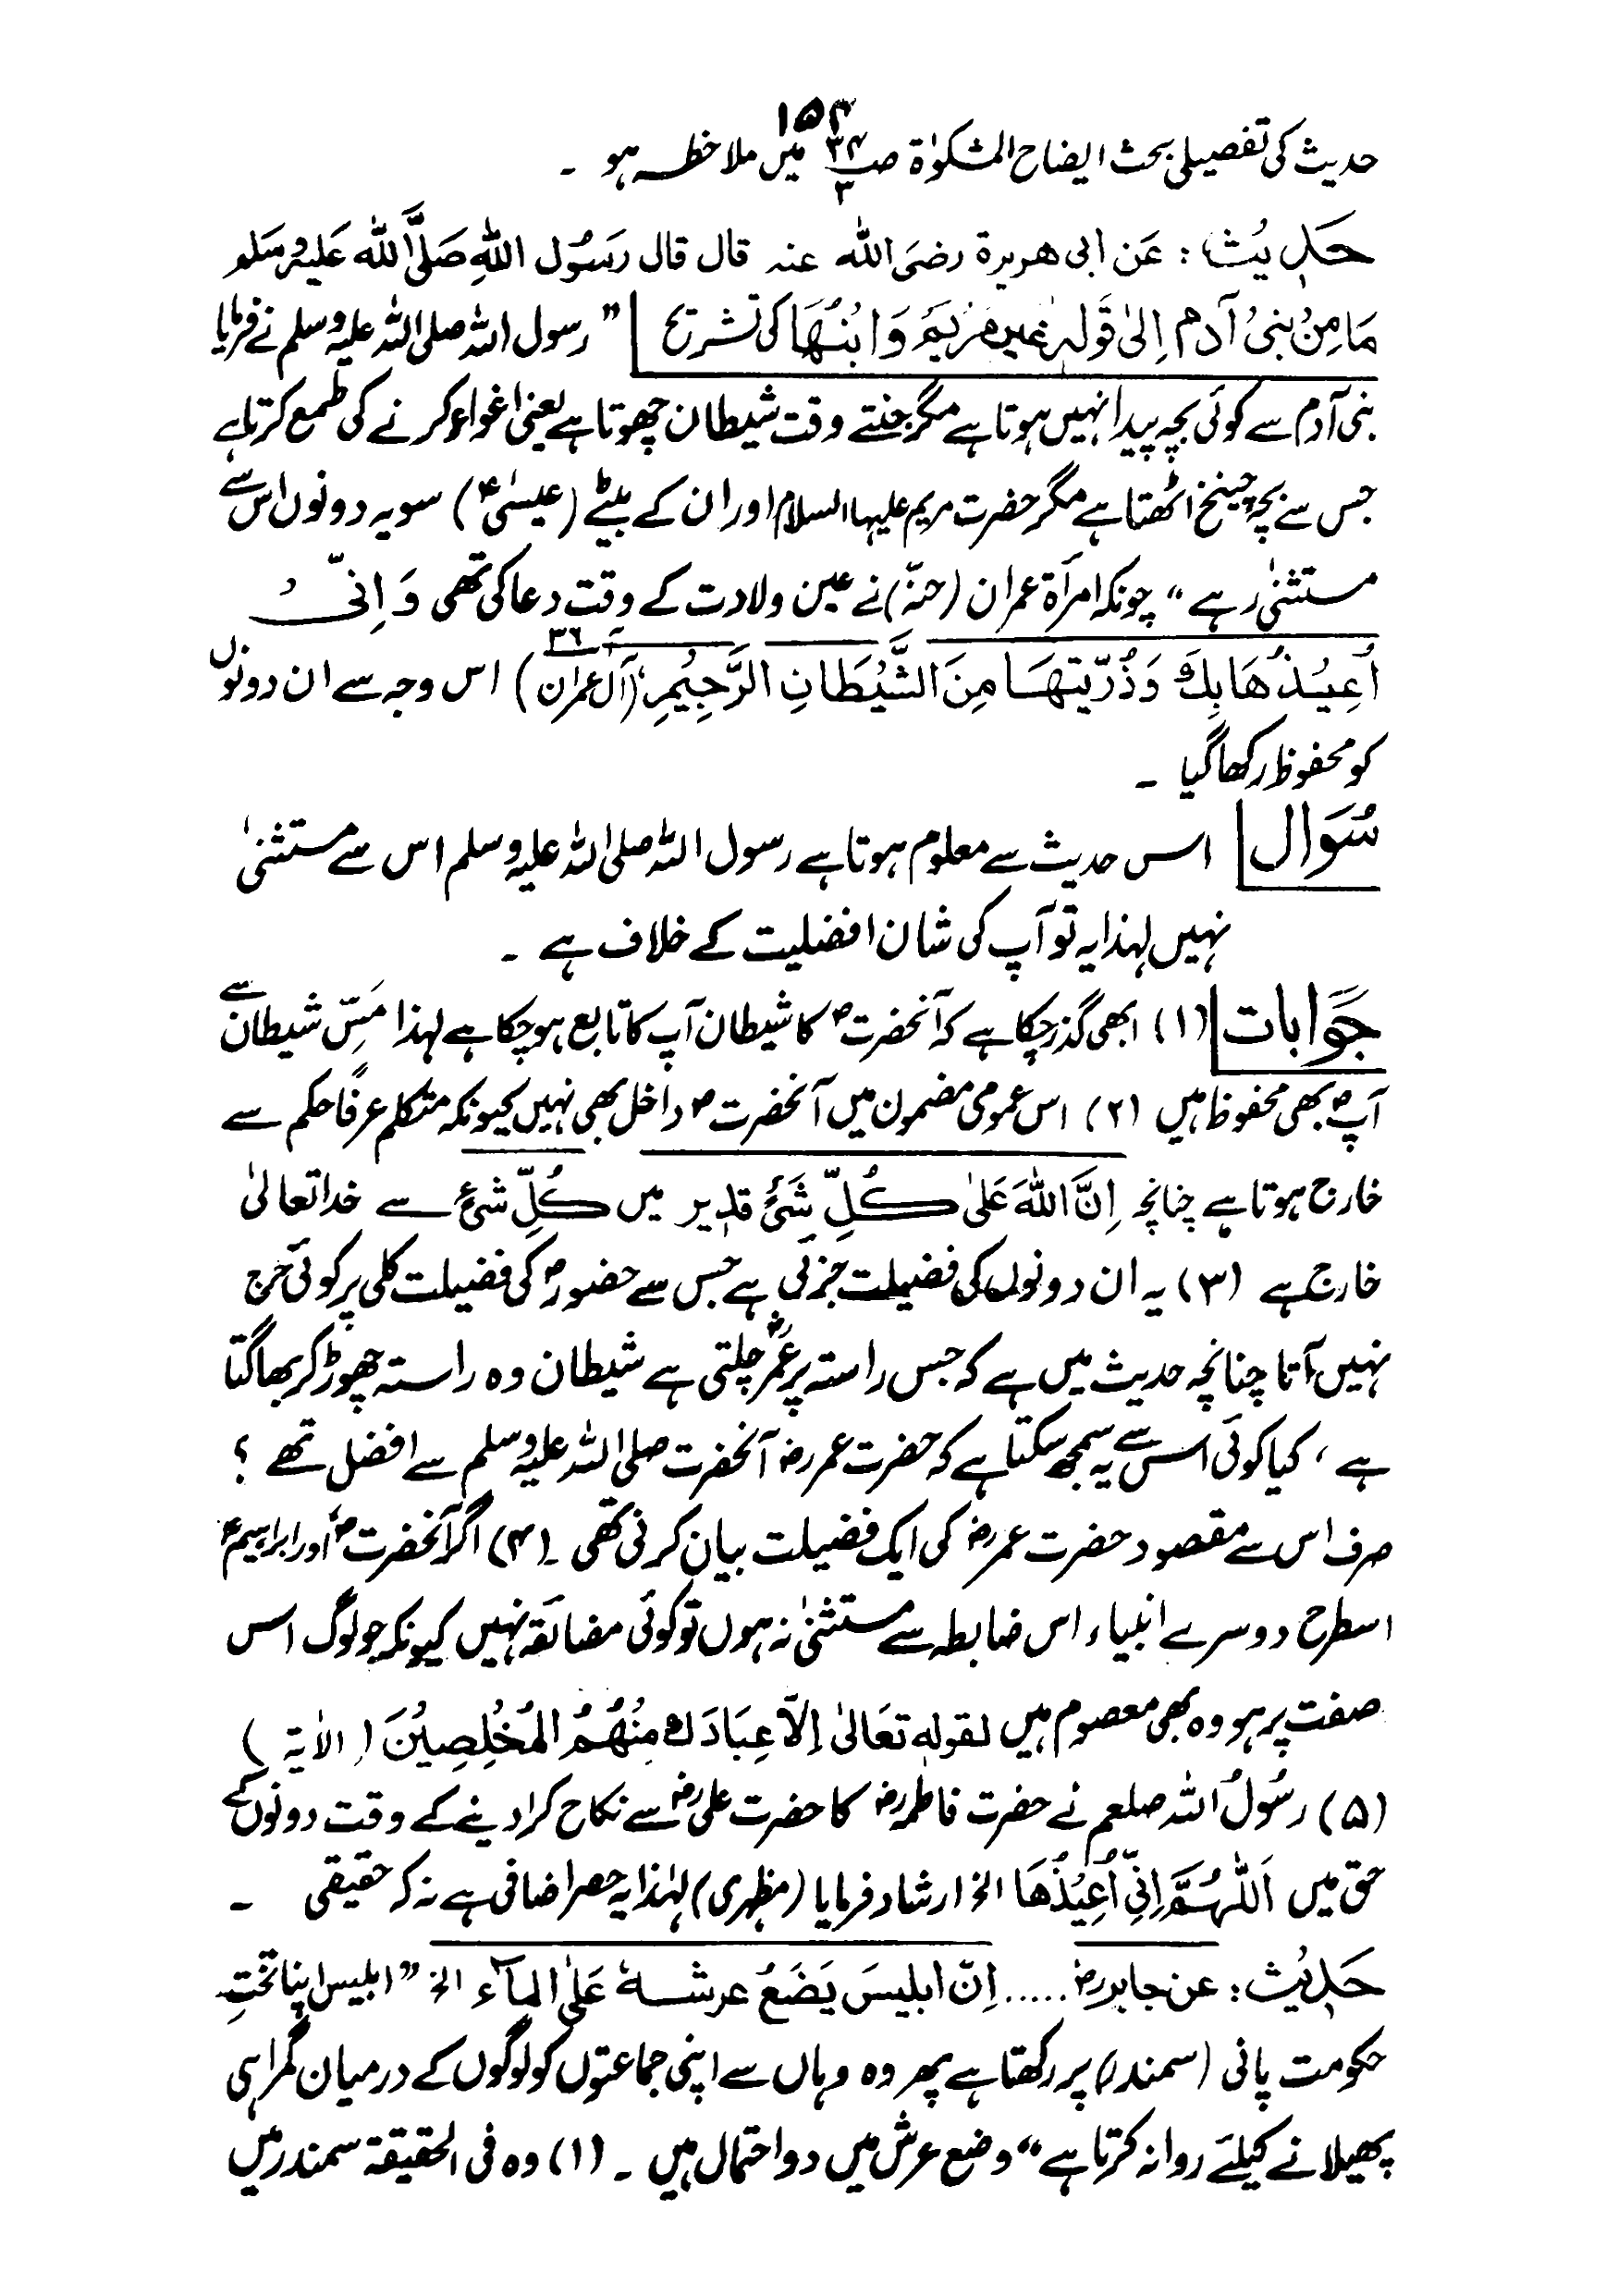 ۱۵۴
حدیث کی تفصیلی بحث ایضاح المشکوٰۃ صـ ۳۴/۳ میں ملاحظہ ہو ۔
حَدِیْث : عَن ابی ھریرۃ رضیَ اللہ عنہ قال قال رَسُوْل اللہِ صَلَّی اللہ عَلیْہِ وَسَلم
مَا مِنْ بنیْ آدم اِلیٰ قَولِہٖ غیر مَرْیَمَ وَابْنُھَا کی تشریح | ” رسول اللہ صلی اللہ علیہ وسلم نے فرمایا
بنی آدم سے کوئی بچہ پیدا نہیں ہوتا ہے مگر جنتے وقت شیطان چھوتا ہے یعنی اغواء کرنے کی طمع کرتا ہے
جس سے بچہ چینخ اٹھتا ہے مگر حضرت مریم علیہا السلام اور ان کے بیٹے (عیسٰیؑ) سو یہ دونوں اس سے
مستثنیٰ رہے “ چونکہ امرأۃ عمران (حنّہ) نے عین ولادت کے وقت دعا کی تھی وَ اِنِّیْ
اُعِیْذُھَا بِكَ وَذُرِّیَّتَھَا مِنَ الشَّیْطَانِ الرَّجِیْمِ (آل عمران آ ۳۶) اس وجہ سے ان دونوں
کو محفوظ رکھا گیا ۔
سُوَال | اس حدیث سے معلوم ہوتا ہے رسول اللہ صلی اللہ علیہ وسلم اس سے مستثنیٰ
نہیں لہذا یہ تو آپ کی شان افضلیت کے خلاف ہے ۔
جَوَابات | (۱) ابھی گذر چکا ہے کہ آنحضرتؐ کا شیطان آپ کا تابع ہو چکا ہے لہذا مَسِّ شیطان سے
آپؐ بھی محفوظ ہیں (۲) اس عمومی مضمون میں آنحضرتؐ داخل بھی نہیں کیونکہ متکلم عرفًا حکم سے
خارج ہوتا ہے چنانچہ اِنَّ اللہَ عَلیٰ کُلِّ شَیْءٍ قدیر میں کُلِّ شیْءٍ سے خدا تعالیٰ
خارج ہے (۳) یہ ان دونوں کی فضیلت جزئی ہے جس سے حضورؐ کی فضیلت کلی پر کوئی حرج
نہیں آتا چنانچہ حدیث میں ہے کہ جس راستہ پر عمرؓ چلتی ہے شیطان وہ راستہ چھوڑ کر بھاگتا
ہے ، کیا کوئی اس سے یہ سمجھ سکتا ہے کہ حضرت عمرؓ آنحضرت صلی اللہ علیہ وسلم سے افضل تھے ؟
صرف اس سے مقصود حضرت عمرؓ کی ایک فضیلت بیان کرنی تھی ۔ (۴) اگر آنحضرتؐ اور ابراہیمؑ
اسطرح دوسرے انبیاء اس ضابطہ سے مستثنیٰ نہ ہوں تو کوئی مضائقہ نہیں کیونکہ جو لوگ اس
صفت پر ہو وہ بھی معصوم ہیں لقولہ تعَالیٰ اِلَّا عِبَادَكَ مِنْھُمُ الْمُخْلِصِیْنَ (الاٰیۃ)
(۵) رسُوْلُ اللہ صلعم نے حضرت فاطمہؓ کا حضرت علیؓ سے نکاح کرا دینے کے وقت دونوں کے
حق میں اَللّٰھُمَّ اِنِّیْ اُعِیْذُھَا الخ ارشاد فرمایا (مظہری) لہٰذا یہ حصر اضافی ہے نہ کہ حقیقی ۔
حَدِیْث : عن جابرؓ ..... اِنّ ابلیسَ یَضَعُ عرشہ عَلیٰ المآء الخ ” ابلیس اپنا تختِ
حکومت پانی (سمندر) پر رکھتا ہے پھر وہ وہاں سے اپنی جماعتوں کو لوگوں کے درمیان گمراہی
پھیلانے کیلئے روانہ کرتا ہے “ وضع عرش میں دو احتمال ہیں ۔ (۱) وہ فی الحقیقۃ سمندر میں